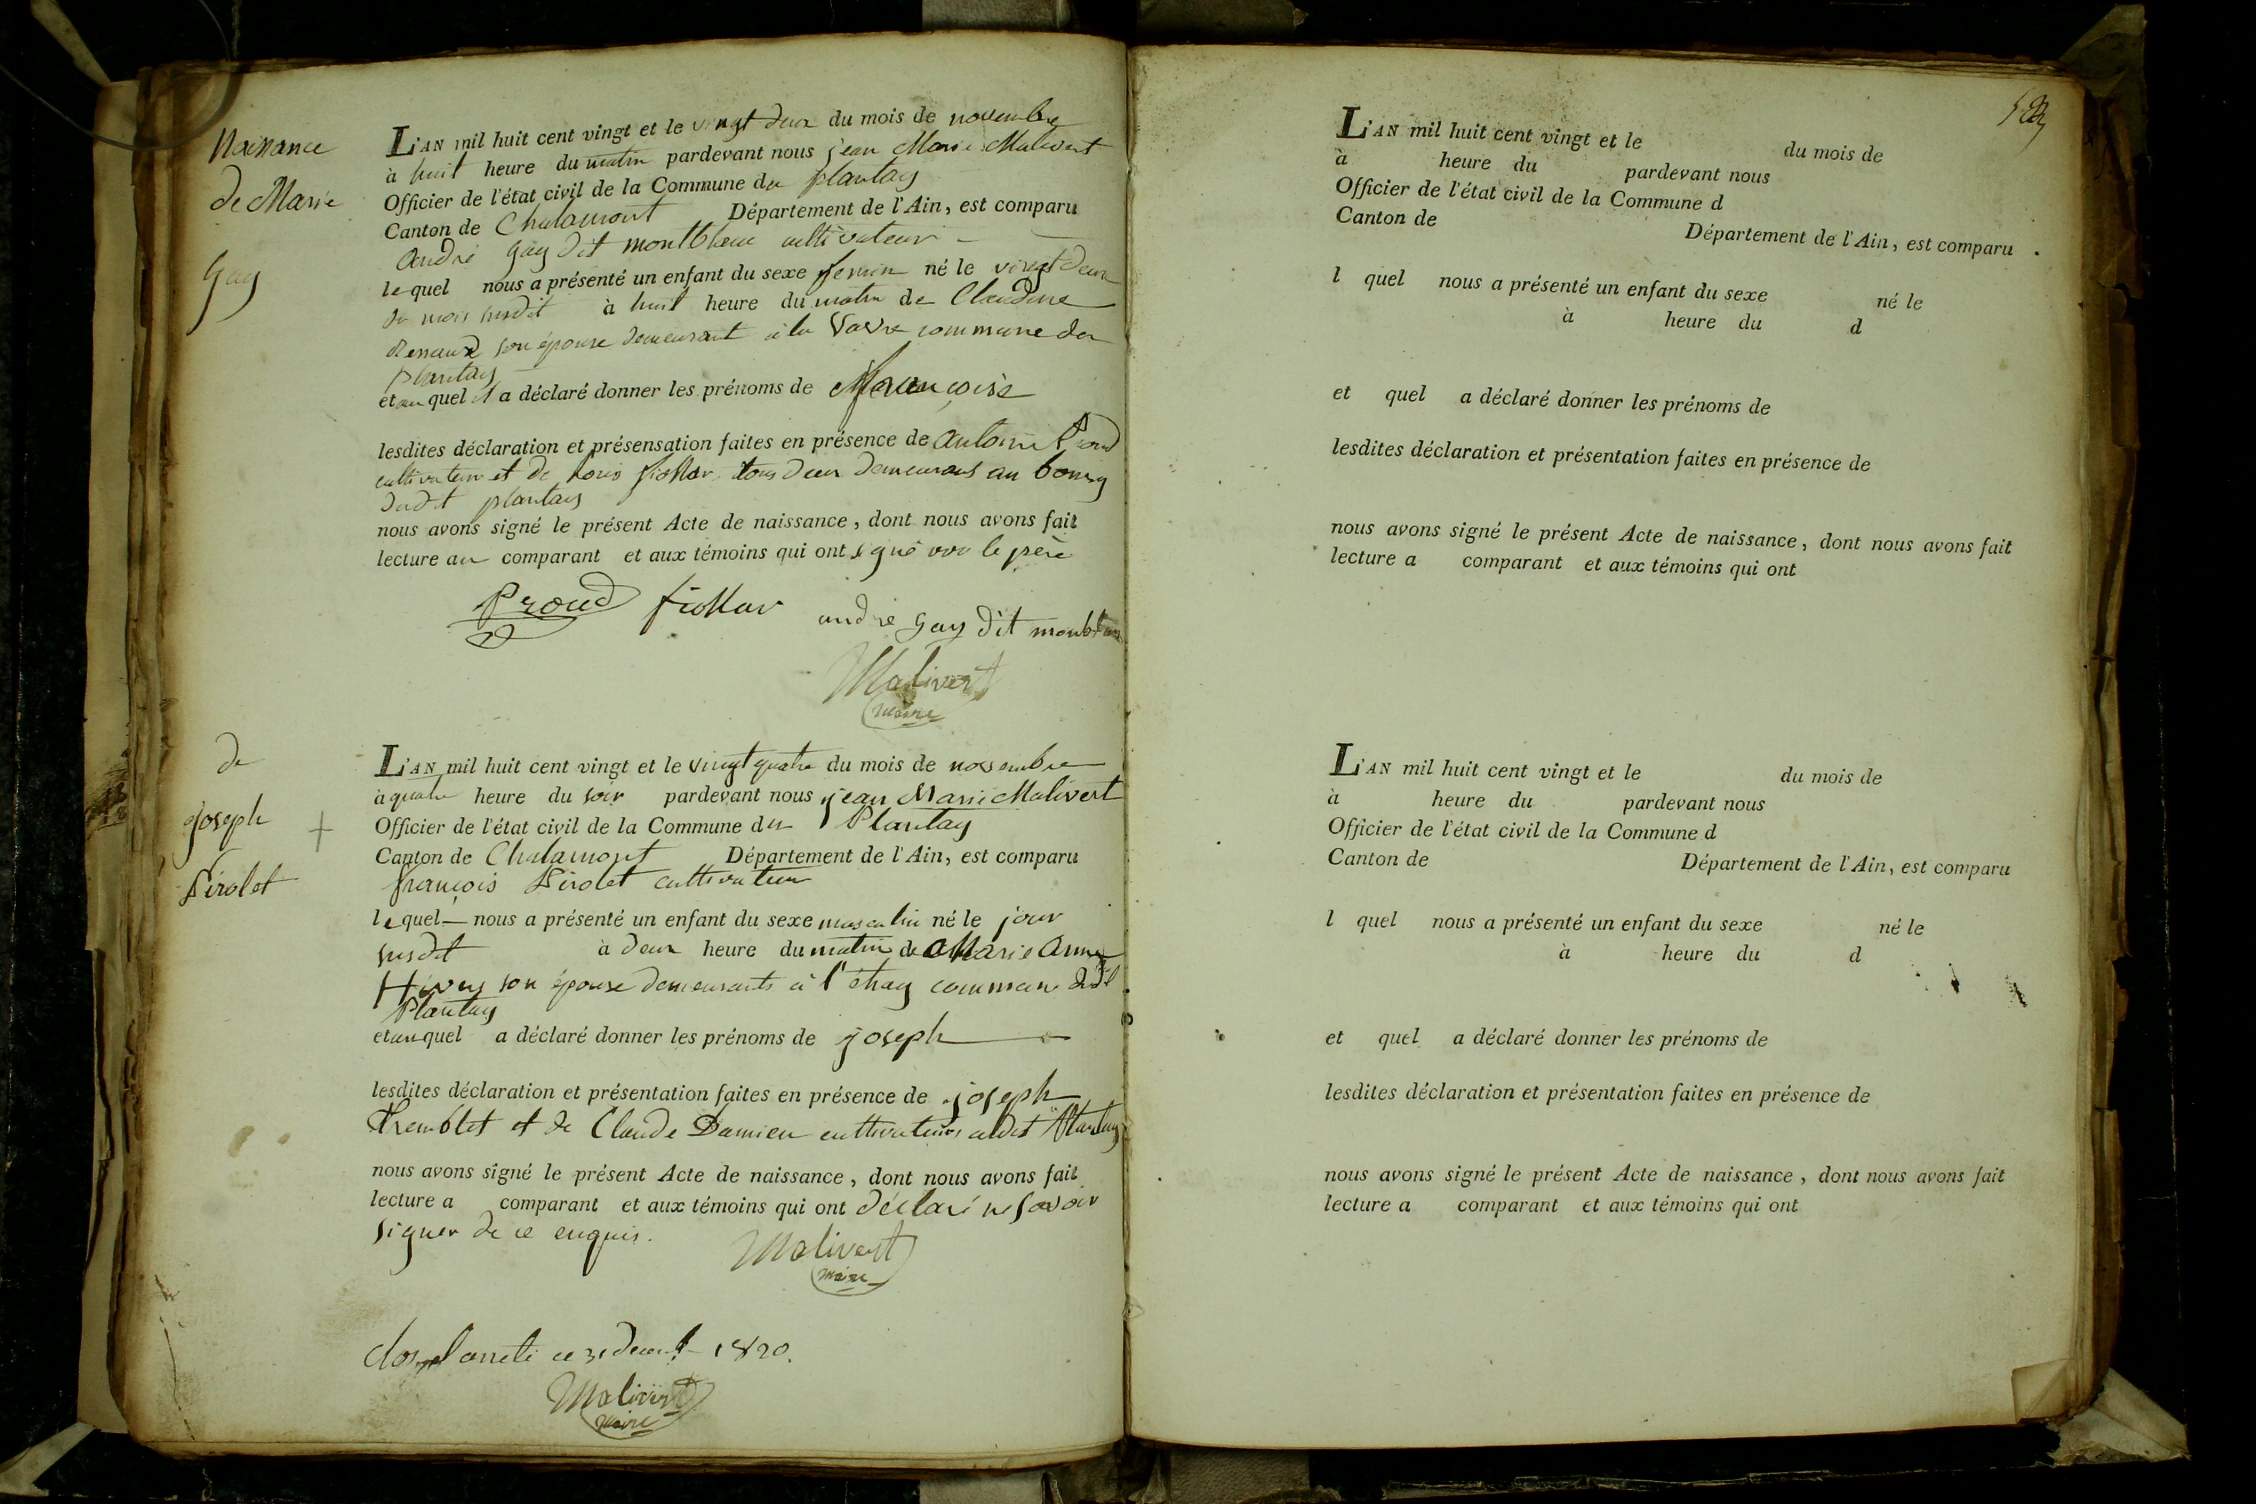 Naissance
de Marie
Gay
L'AN mil huit cent vingt et le vingt deux du mois de novembre
à huit heure du matin pardevant nous jean Marie Malivert
Officier de l'état civil de la Commune du plantay
Canton de Chalamont Département de l'Ain, est comparu
andré gay dit montblanc cultivateur
lequel nous a présenté un enfant du sexe femin né le vingt deux
du mois susdit à huit heure du matin de Claudine
Renaud son épouse demeurant à la commune du
plantay
et au quel il a déclaré donner les prénoms de
lesdites déclaration et présensation faites en présence de antoine Proud
cultivateur et de louis fiollar tous deux demeurans au bourg
dudit plantay
nous avons signé le présent Acte de naissance, dont nous avons fait
lecture au comparant et aux témoins qui ont signé le père
Proud fiollar andré gay dit montblanc
Malivert
maire
de
joseph
Pirolet
L'AN mil huit cent vingt et le vingt quatre du mois de novembre
à quatre heure du soir pardevant nous jean Marie Malivert
Officier de l'état civil de la Commune du Plantay
Canton de Chalamont Département de l'Ain, est comparu
françois Pirolet cultivateur
lequel nous a présenté un enfant du sexe masculin né le jour
susdit à deux heure du matin de Marie anne
son épouse demeurants à l'étang commune dudit
Plantay
et auquel a déclaré donner les prénoms de joseph
lesdites déclaration et présentation faites en présence de joseph
Tremblet et de Claude Damien cultivateurs audit Plantay
nous avons signé le présent Acte de naissance, dont nous avons fait
lecture a comparant et aux témoins qui ont déclaré ne savoir
signer de ce enquis.
Malivert
maire
clos et arreté ce 31 decemb 1820.
Malivert
maire
L'AN mil huit cent vingt et le du mois de
à heure du pardevant nous
Officier de l'état civil de la Commune d
Canton de Département de l'Ain, est comparu
l quel nous a présenté un enfant du sexe né le
à heure du d
et quel a déclaré donner les prénoms de
lesdites déclaration et présentation faites en présence de
nous avons signé le présent Acte de naissance, dont nous avons fait
lecture a comparant et aux témoins qui ont
L'AN mil huit cent vingt et le du mois de
à heure du pardevant nous
Officier de l'état civil de la Commune d
Canton de Département de l'Ain, est comparu
l quel nous a présenté un enfant du sexe né le
à heure du d
et quel a déclaré donner les prénoms de
lesdites déclaration et présentation faites en présence de
nous avons signé le présent Acte de naissance, dont nous avons fait
lecture a comparant et aux témoins qui ont